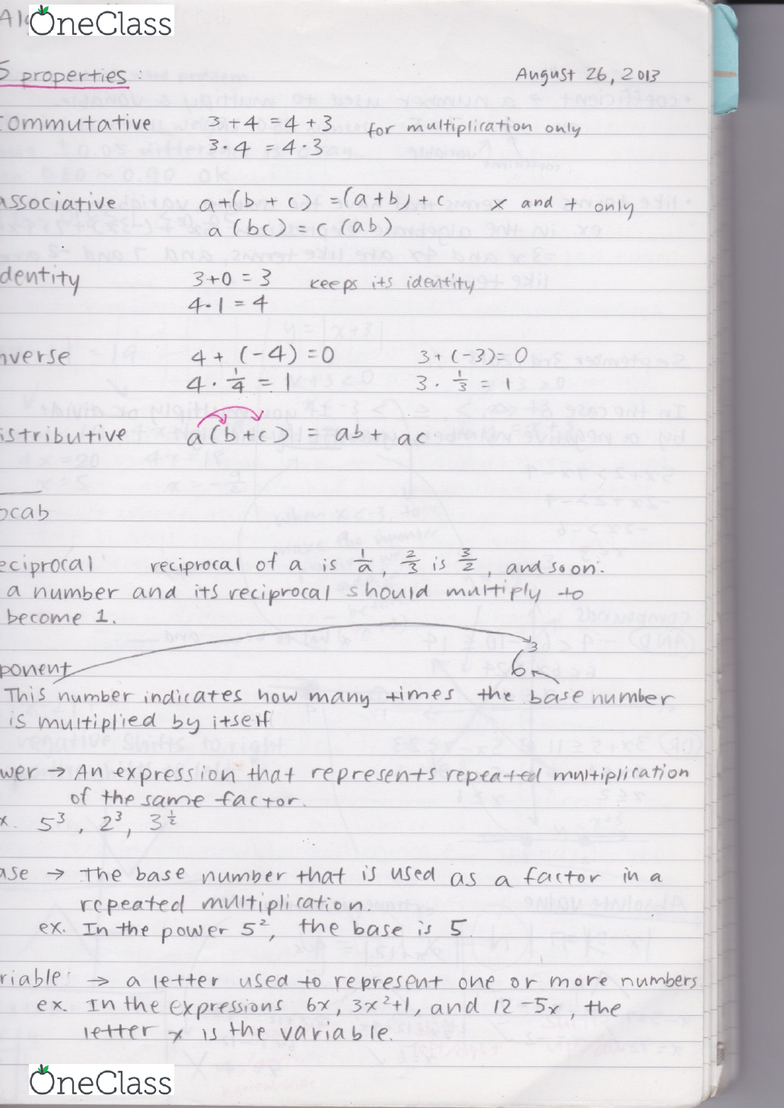 Al
OneClass
5 properties:
August 26, 2013
commutative 3+4 = 4+3 for multiplication only
3·4 = 4·3
associative a+(b+c) = (a+b)+c x and + only
a(bc) = c(ab)
dentity 3+0 = 3 keeps its identity
4·1 = 4
nverse 4 + (-4) = 0 3 + (-3) = 0
4 · 1/4 = 1 3 · 1/3 = 1
istributive a(b+c) = ab + ac
ocab
eciprocal reciprocal of a is 1/a, 2/3 is 3/2, and so on.
a number and its reciprocal should multiply to
become 1.
ponent 6³
This number indicates how many times the base number
is multiplied by itself
wer → An expression that represents repeated multiplication
of the same factor.
x. 5³, 2³, 3^½
ase → the base number that is used as a factor in a
repeated multiplication.
ex. In the power 5², the base is 5
riable: → a letter used to represent one or more numbers
ex. In the expressions 6x, 3x²+1, and 12-5x, the
letter x is the variable.
OneClass